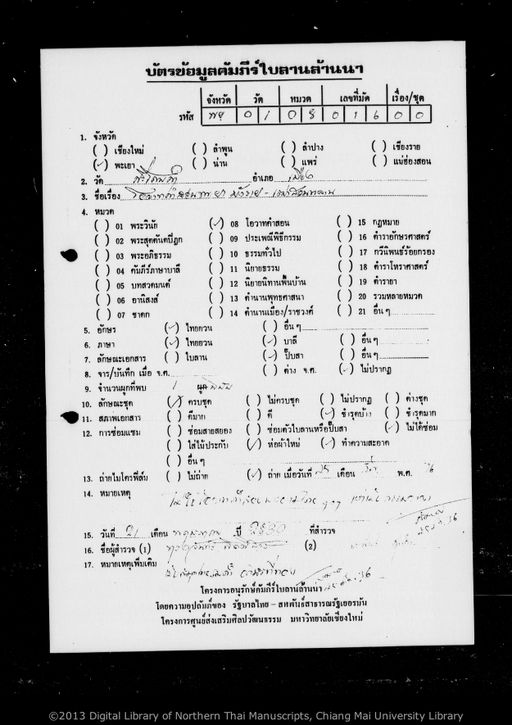 บัตรข้อมูลคัมภีร์ใบลานล้านนา
จังหวัด วัด หมวด เลขที่มัด เรื่อง/ชุด
รหัส พย 0 1 0 8 0 1 6 0 0
1. จังหวัด
( ) เชียงใหม่ ( ) ลำพูน ( ) ลำปาง ( ) เชียงราย
(✓) พะเยา ( ) น่าน ( ) แพร่ ( ) แม่ฮ่องสอน
2. วัด อำเภอ เมือง
3. ชื่อเรื่อง
4. หมวด
( ) 01 พระวินัย (✓) 08 โอวาทคำสอน ( ) 15 กฎหมาย
( ) 02 พระสุตตันตปิฎก ( ) 09 ประเพณีพิธีกรรม ( ) 16 ตำราอักษรศาสตร์
( ) 03 พระอภิธรรม ( ) 10 ธรรมทั่วไป ( ) 17 กวีนิพนธ์ร้อยกรอง
( ) 04 คัมภีร์ภาษาบาลี ( ) 11 นิยายธรรม ( ) 18 ตำราโหราศาสตร์
( ) 05 บทสวดมนต์ ( ) 12 นิยายนิทานพื้นบ้าน ( ) 19 ตำรายา
( ) 06 อานิสงส์ ( ) 13 ตำนานพุทธศาสนา ( ) 20 รวมหลายหมวด
( ) 07 ชาดก ( ) 14 ตำนานเมือง/ราชวงศ์ ( ) 21 อื่น ๆ
5. อักษร (✓) ไทยยวน ( ) อื่น ๆ
6. ภาษา (✓) ไทยยวน (✓) บาลี ( ) อื่น ๆ
7. ลักษณะเอกสาร ( ) ใบลาน (✓) ปั๊บสา ( ) อื่น ๆ
8. จาร/บันทึก เมื่อ จ.ศ. ( ) ต่าง จ.ศ. (✓) ไม่ปรากฏ
9. จำนวนผูกที่พบ 1 ผูก
10. ลักษณะชุด (✓) ครบชุด ( ) ไม่ครบชุด ( ) ไม่ปรากฏ ( ) ต่างชุด
11. สภาพเอกสาร ( ) ดีมาก ( ) ดี (✓) ชำรุดบ้าง ( ) ชำรุดมาก
12. การซ่อมแซม ( ) ซ่อมสายสยอง ( ) ซ่อมตัวใบลานหรือปั๊บสา (✓) ไม่ได้ซ่อม
( ) ใส่ไม้ประกับ (✓) ห่อผ้าใหม่ (✓) ทำความสะอาด
( ) อื่น ๆ
13. ถ่ายไมโครฟิล์ม ( ) ไม่ถ่าย (✓) ถ่าย เมื่อวันที่ เดือน พ.ศ.
14. หมายเหตุ
15. วันที่ 21 เดือน ปี ที่สำรวจ
16. ชื่อผู้สำรวจ (1) (2)
17. หมายเหตุเพิ่มเติม
โครงการอนุรักษ์คัมภีร์ใบลานล้านนา
โดยความอุปถัมภ์ของ รัฐบาลไทย - สหพันธ์สาธารณรัฐเยอรมัน
โครงการศูนย์ส่งเสริมศิลปวัฒนธรรม มหาวิทยาลัยเชียงใหม่
©2013 Digital Library of Northern Thai Manuscripts, Chiang Mai University Library